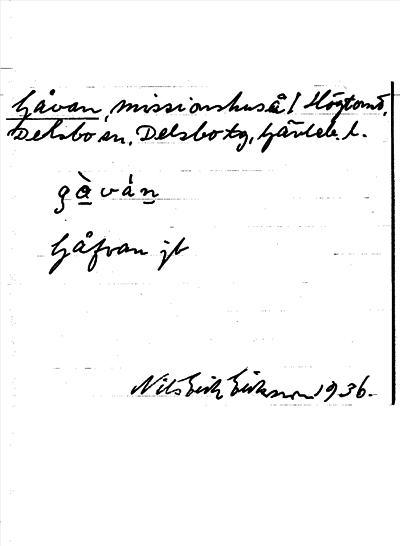 Gåvan, missionshus å / Högtomt,
Delsbo sn, Delsbo tg, Gävleb. l.
gàván
Gåfvan jb
Nils Erik Eriksson 1936.